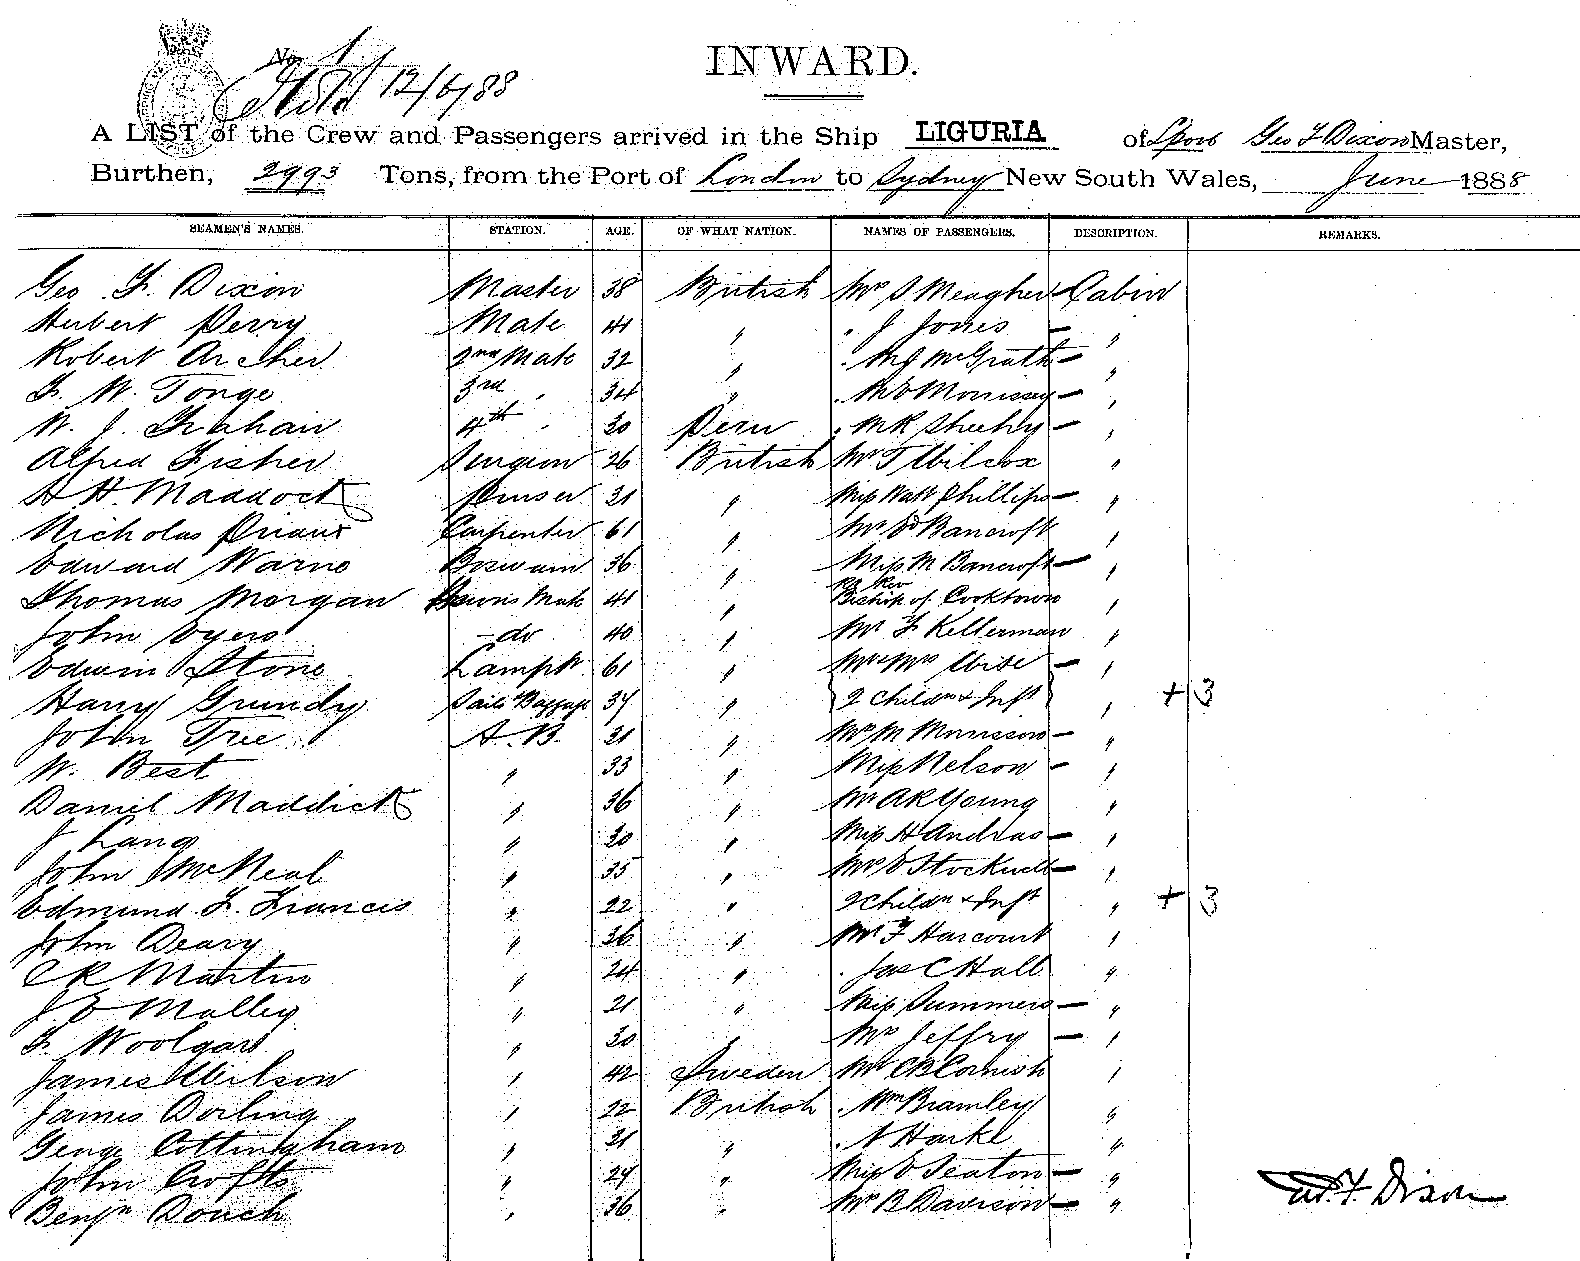 No 1
12/6/88
INWARD.
A LIST of the Crew and Passengers arrived in the Ship LIGURIA of Geo F Dixon Master,
Burthen, 2993 Tons, from the Port of London to Sydney New South Wales, June 1888
SEAMEN'S NAMES. STATION. AGE. OF WHAT NATION. NAMES OF PASSENGERS. DESCRIPTION. REMARKS.
Geo F. Dixon Master 38 British Mrs S Meagher Cabin
Herbert Perry Mate 41 " " J Jones — "
Robert Archer 2nd Mate 32 " " M J McGrath — "
F. W. Tonge 3rd " 34 " " M O Morrissey — "
W. J. Graham 4th " 30 Peru " M R Sheehy — "
Alfred Fisher Surgeon 26 British Mr T Wilcox "
A H Maddock Purser 31 " Miss Watt Phillips — "
Nicholas Priaux Carpenter 61 " Mr Bancroft "
Edward Warne Boswain 36 " Miss M Bancroft — "
Thomas Morgan Boswns Mate 41 " Rt Rev Bishop of Cooktown "
John Byers — do 40 " Mr F Kellerman "
Edwin Stone Lamptr. 61 " Mr & Mrs Wise — "
Harry Grundy Sails & Baggage 34 " 2 Childn & Inft " + 3
John Tree A.B. 31 " Mrs M Morrisson — "
W. Best " 33 " Miss Nelson — "
Daniel Maddick " 36 " Mr A R Young "
J Lang " 30 " Miss H Andras — "
John McNeal " 35 " Mrs Stockwell — "
Edmund F. Francis " 22 " 2 Childn & Inft " + 3
John Deary " 36 " Mr F Harcourt "
C R Martin " 24 " " Jas C Hall "
J E Malley " 21 " Miss Summers — "
F. Woolgar " 30 " Mrs Jeffry — "
James Wilson " 42 Sweden Mr C B Cornish "
James Dorling " 22 British " Wm Bramley "
George Cottingham " 31 " " Harke "
John Crofts " 24 " Miss Seaton — "
Benjn Douch " 36 " Mrs B Davison — "
F. Dixon